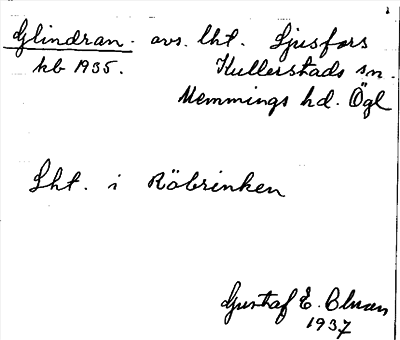 Glindran. avs. lht. Ljusfors
kb 1935. Kullerstads sn.
Memmings hd. Ögl
Lht. i Röbrinken
Gustaf E. Olman
1937